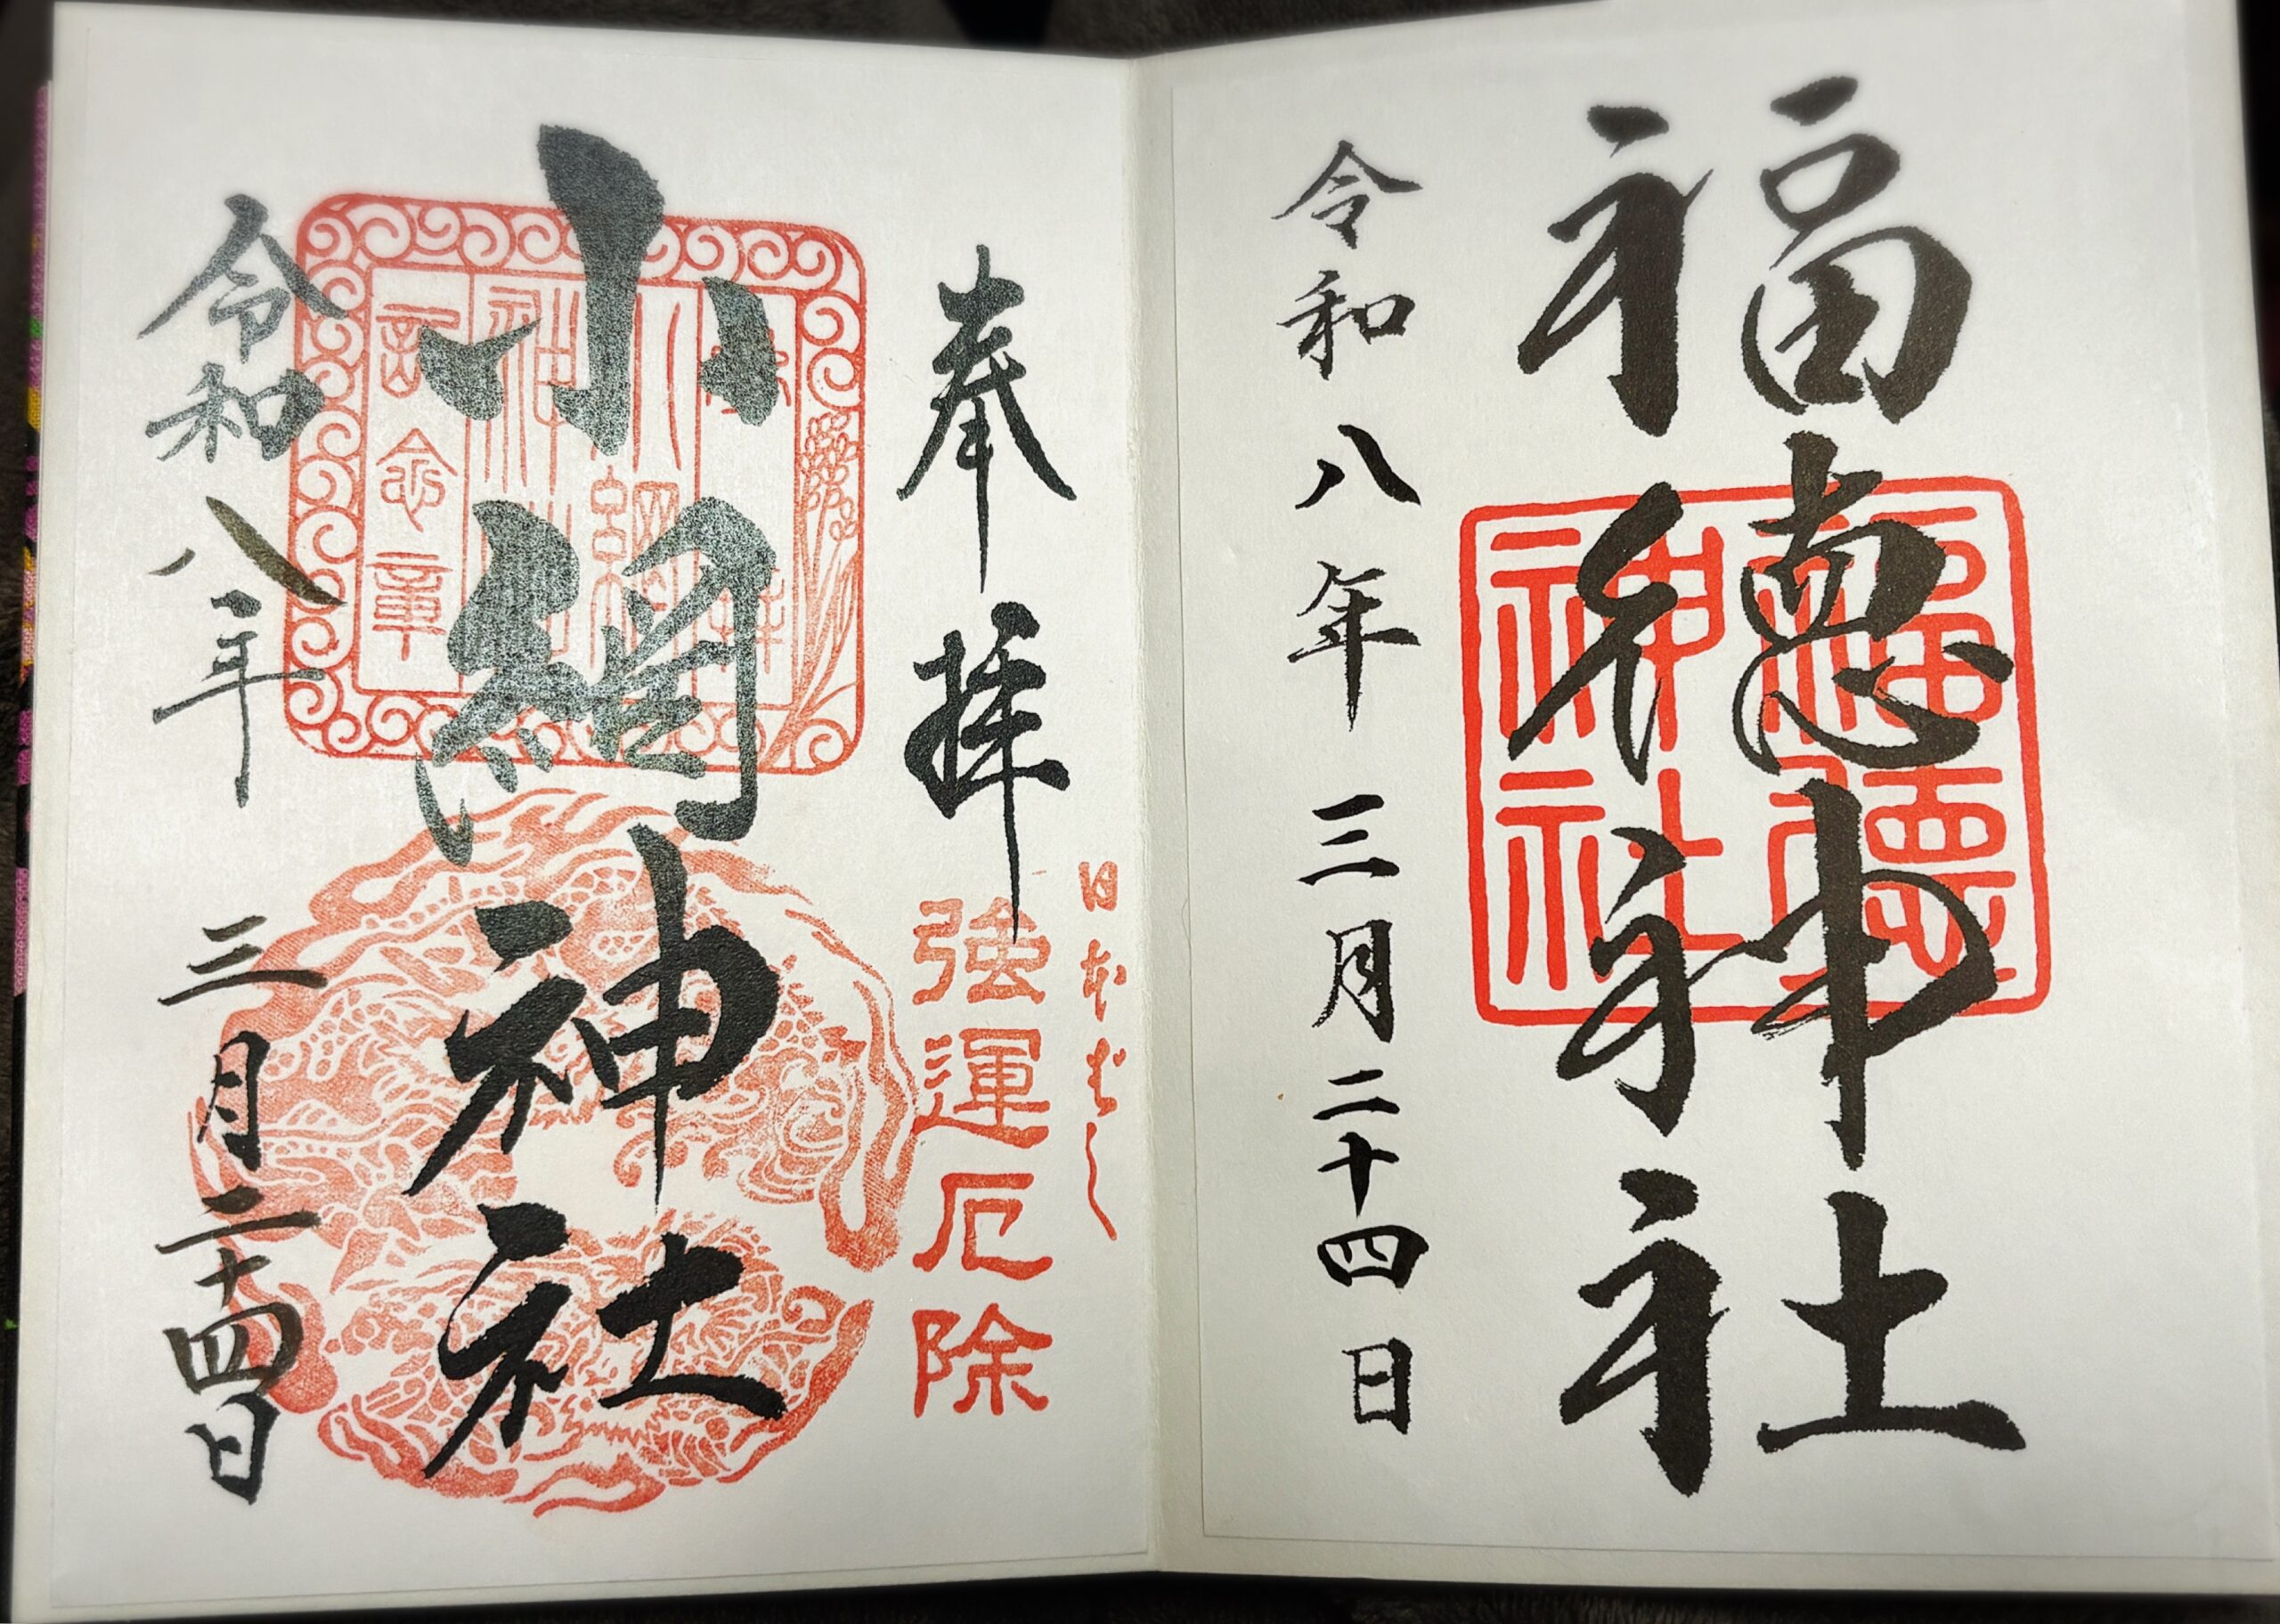 福徳神社
福徳
神社
令和八年 三月二十四日
日本ばし
奉拝
強運厄除
小網神社
小網
神社
令和八年 三月二十四日